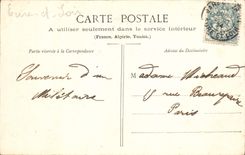 CARTE POSTALE
A utiliser seulement dans le service intérieur
(France, Algérie, Tunisie.)
Partie réservée à la Correspondance
Adresse du Destinataire
Souvenir d'un
Militaire
Madame
rue
Paris